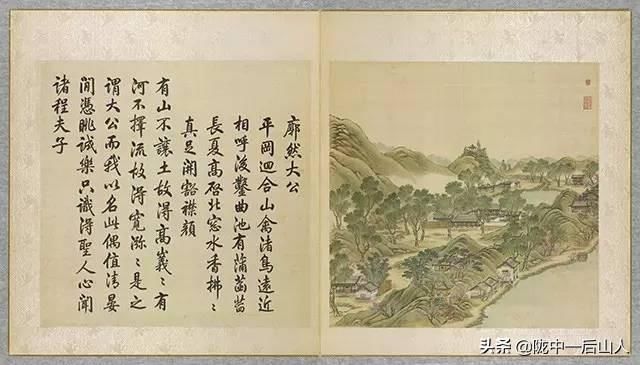 廓然大公
平岡迴合山禽渚鳥遠近
相呼後鑿曲池有蒲菡萏
長夏高啓北窓水香拂〻
真足開豁襟顏
有山不讓土故得高嶬〻有
河不擇流故得寬瀰〻是之
謂大公而我以名此偶值清晏
閒憑眺誠樂只識得聖人心聞
諸程夫子
头条 @陇中一后山人